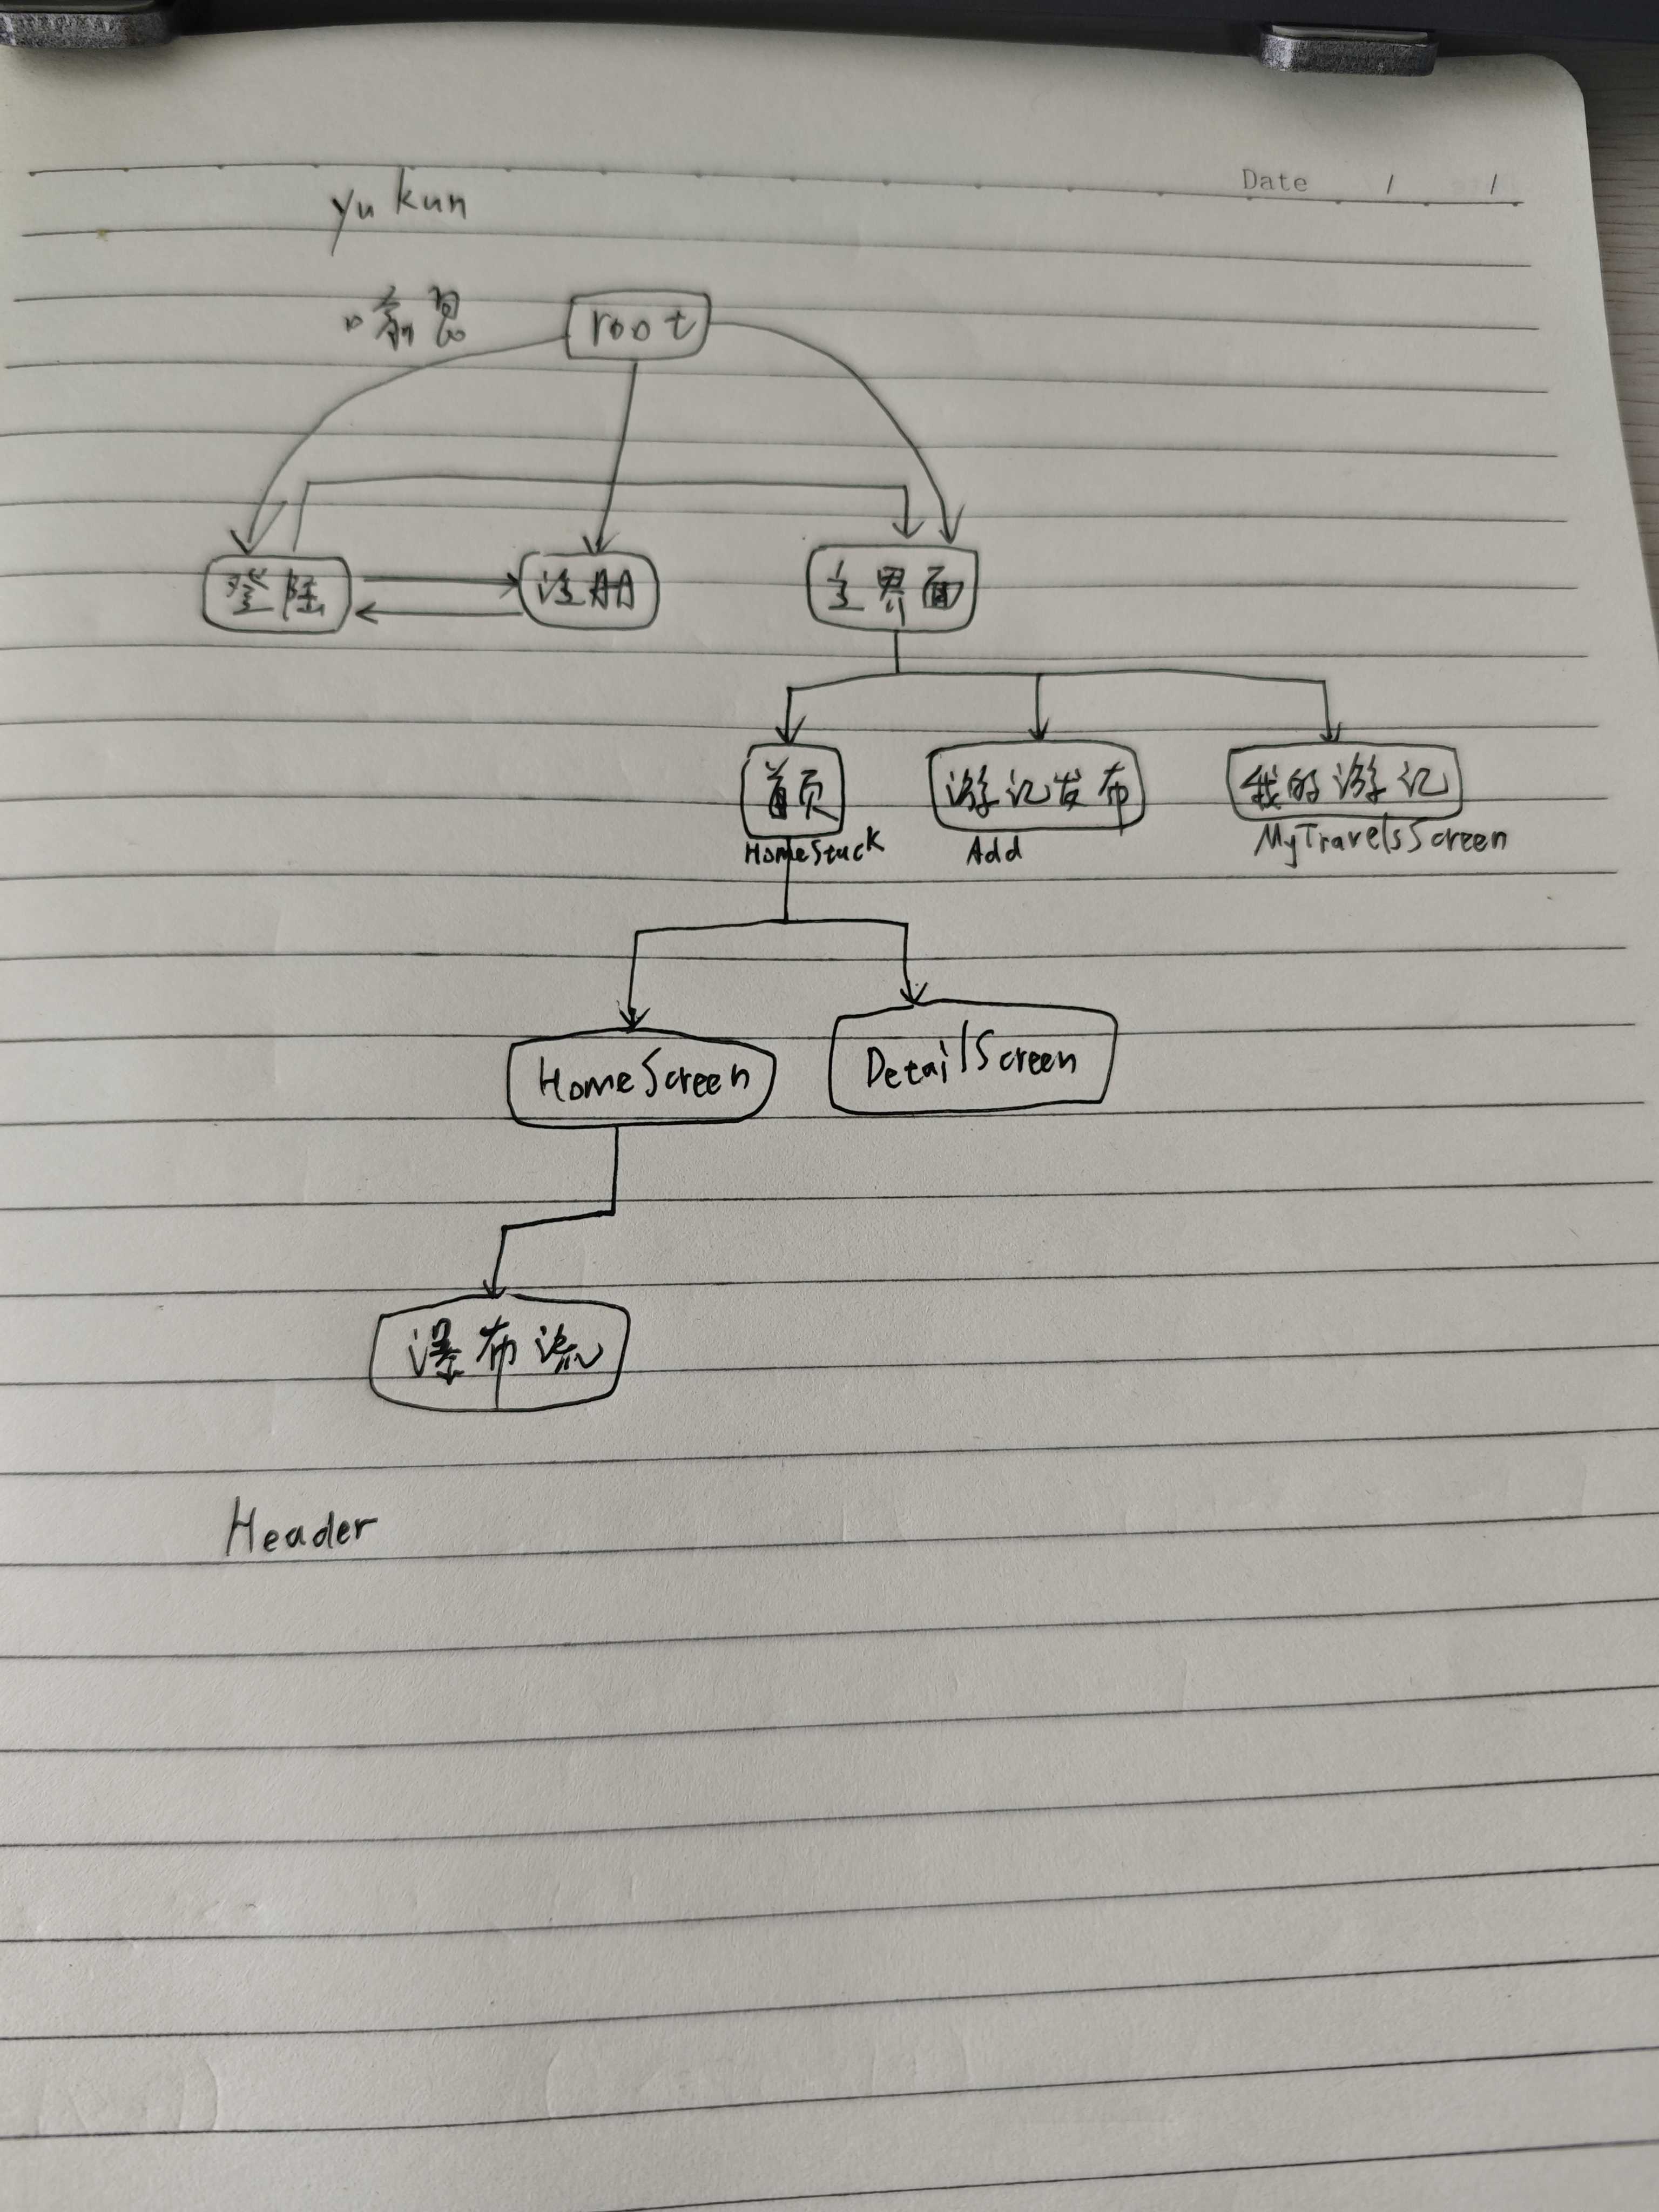 Date / /
yu kun
root
登陆 注册 主界面
首页 游记发布 我的游记
HomeStack Add MyTravelsScreen
HomeScreen DetailScreen
瀑布流
Header